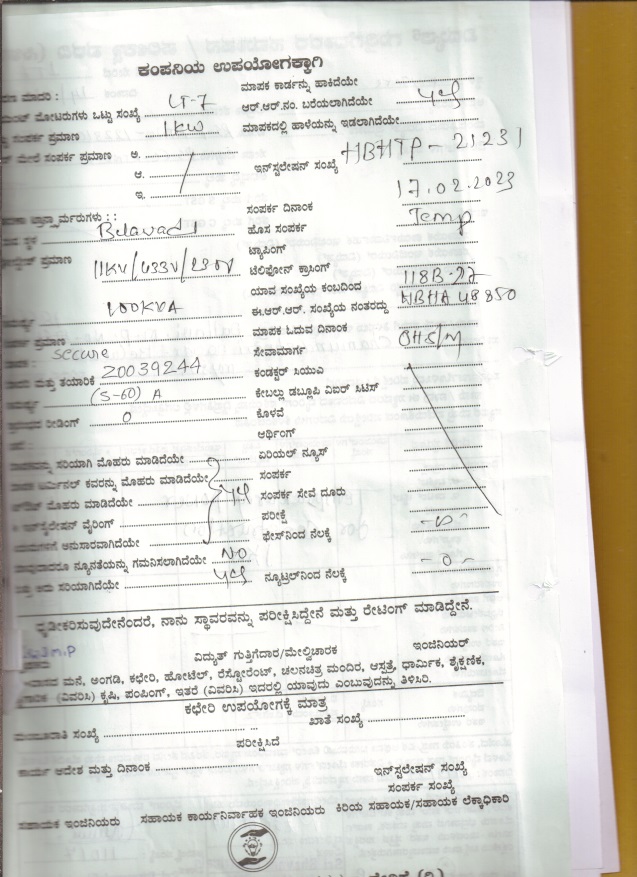 ಕಂಪನಿಯ ಉಪಯೋಗಕ್ಕಾಗಿ
ಮಾಪಕ ಕಾರ್ಡನ್ನು ಹಾಕಿದೆಯೇ
ಮಾದರಿ : LT-7 ಆರ್.ಆರ್.ನಂ. ಬರೆಯಲಾಗಿದೆಯೇ yes
ಮೋಟರುಗಳು ಒಟ್ಟು ಸಂಖ್ಯೆ
ಸಂಪರ್ಕ ಪ್ರಮಾಣ 1KW ಮಾಪಕದಲ್ಲಿ ಹಾಳೆಯನ್ನು ಇಡಲಾಗಿದೆಯೇ
ಮೇಲೆ ಸಂಪರ್ಕ ಪ್ರಮಾಣ ಅ.
ಆ. ಇನ್‌ಸ್ಟಲೇಷನ್ ಸಂಖ್ಯೆ HBHTP - 21231
ಇ.
ಸಂಪರ್ಕ ದಿನಾಂಕ 17.02.2023
ಹೊಸ ಸಂಪರ್ಕ Temp
ಸ್ಥಳ Belavadi ಟ್ಯಾಪಿಂಗ್
ಪ್ರಮಾಣ 11KV/433V/230V ಟೆಲಿಫೋನ್ ಕ್ರಾಸಿಂಗ್
ಯಾವ ಸಂಖ್ಯೆಯ ಕಂಬದಿಂದ 118B-27
100KVA ಈ.ಆರ್.ಆರ್. ಸಂಖ್ಯೆಯ ನಂತರದ್ದು HBHA 48850
ಪ್ರಮಾಣ ಮಾಪಕ ಓದುವ ದಿನಾಂಕ
secure ಸೇವಾಮಾರ್ಗ OHS/M
ಮತ್ತು ತಯಾರಿಕೆ Z0039244 ಕಂಡಕ್ಟರ್ ಸಿಯುಎ
(5-60) A ಕೇಬಲ್ಲು ಡಬ್ಲೂಪಿ ವಿಐರ್ ಸಿಟಿಸ್
ರೀಡಿಂಗ್ 0 ಕೊಳವೆ
ಆರ್ಥಿಂಗ್
ಸರಿಯಾಗಿ ಮೊಹರು ಮಾಡಿದೆಯೇ ಏರಿಯಲ್ ನ್ಯೂಸ್
ಟರ್ಮಿನಲ್ ಕವರನ್ನು ಮೊಹರು ಮಾಡಿದೆಯೇ ಸಂಪರ್ಕ
ಮೊಹರು ಮಾಡಿದೆಯೇ yes ಸಂಪರ್ಕ ಸೇವೆ ದೂರು
ಇನ್‌ಸ್ಟಲೇಷನ್ ವೈರಿಂಗ್ ಪರೀಕ್ಷೆ
ಅನುಸಾರವಾಗಿದೆಯೇ ಫೇಸ್‌ನಿಂದ ನೆಲಕ್ಕೆ
ನ್ಯೂನತೆಯನ್ನು ಗಮನಿಸಲಾಗಿದೆಯೇ NO
ಅದು ಸರಿಯಾಗಿದೆಯೇ yes ನ್ಯೂಟ್ರಲ್‌ನಿಂದ ನೆಲಕ್ಕೆ - 0 -
ದೃಢೀಕರಿಸುವುದೇನೆಂದರೆ, ನಾನು ಸ್ಥಾವರವನ್ನು ಪರೀಕ್ಷಿಸಿದ್ದೇನೆ ಮತ್ತು ರೇಟಿಂಗ್ ಮಾಡಿದ್ದೇನೆ.
ವಿದ್ಯುತ್ ಗುತ್ತಿಗೆದಾರ/ಮೇಲ್ವಿಚಾರಕ ಇಂಜಿನಿಯರ್
ಮನೆ, ಅಂಗಡಿ, ಕಛೇರಿ, ಹೋಟೆಲ್, ರೆಸ್ಟೋರೆಂಟ್, ಚಲನಚಿತ್ರ ಮಂದಿರ, ಆಸ್ಪತ್ರೆ, ಧಾರ್ಮಿಕ, ಶೈಕ್ಷಣಿಕ,
(ವಿವರಿಸಿ) ಕೃಷಿ, ಪಂಪಿಂಗ್, ಇತರೆ (ವಿವರಿಸಿ) ಇದರಲ್ಲಿ ಯಾವುದು ಎಂಬುವುದನ್ನು ತಿಳಿಸಿರಿ.
ಕಛೇರಿ ಉಪಯೋಗಕ್ಕೆ ಮಾತ್ರ
ಮಂಜೂರಾತಿ ಸಂಖ್ಯೆ ಖಾತೆ ಸಂಖ್ಯೆ
ಪರೀಕ್ಷಿಸಿದೆ
ಕಾರ್ಯ ಆದೇಶ ಮತ್ತು ದಿನಾಂಕ ಇನ್‌ಸ್ಟಲೇಷನ್ ಸಂಖ್ಯೆ
ಸಂಪರ್ಕ ಸಂಖ್ಯೆ
ಸಹಾಯಕ ಇಂಜಿನಿಯರು ಸಹಾಯಕ ಕಾರ್ಯನಿರ್ವಾಹಕ ಇಂಜಿನಿಯರು ಕಿರಿಯ ಸಹಾಯಕ/ಸಹಾಯಕ ಲೆಕ್ಕಾಧಿಕಾರಿ